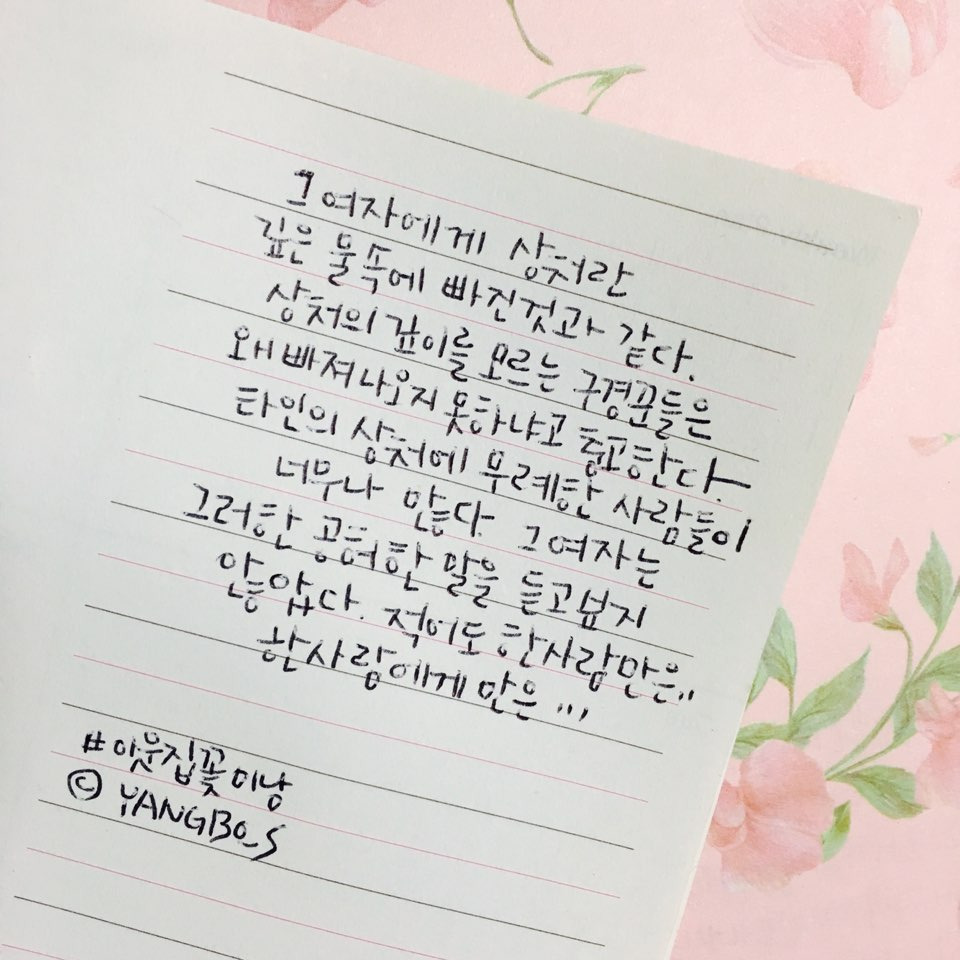 그 여자에게 상처란
깊은 물속에 빠진것과 같다.
상처의 깊이를 모르는 구경꾼들은
왜 빠져나오지 못하냐고 충고한다.
타인의 상처에 무례한 사람들이
너무나 많다. 그 여자는
그러한 공허한 말을 듣고싶지
않았다. 적어도 한사람만은..
한사람에게 만은 ...
#이웃집꽃미남
© YANGBO_S